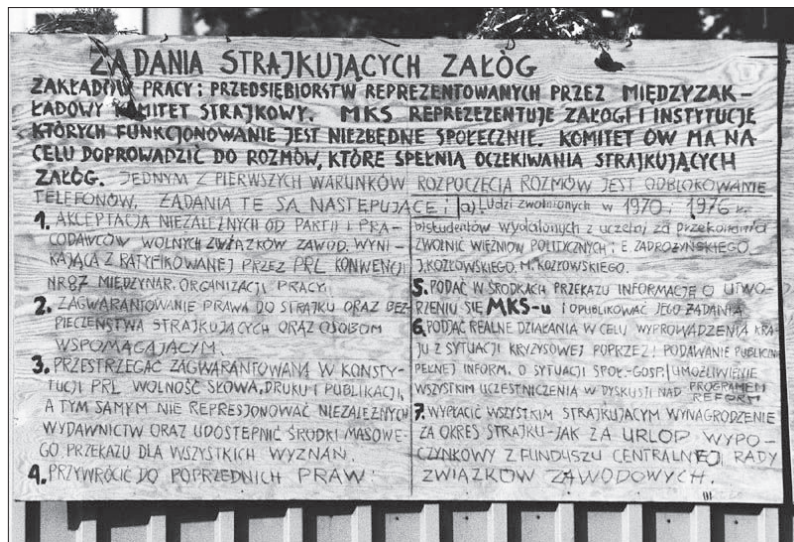 ŻĄDANIA STRAJKUJĄCYCH ZAŁÓG
ZAKŁADÓW PRACY I PRZEDSIĘBIORSTW REPREZENTOWANYCH PRZEZ MIĘDZYZAK-
ŁADOWY KOMITET STRAJKOWY. MKS REPREZEZENTUJE ZAŁOGI I INSTYTUCJE
KTÓRYCH FUNKCJONOWANIE JEST NIEZBĘDNE SPOŁECZNIE. KOMITET ÓW MA NA
CELU DOPROWADZIĆ DO ROZMÓW, KTÓRE SPEŁNIĄ OCZEKIWANIA STRAJKUJĄCYCH
ZAŁÓG. JEDNYM Z PIERWSZYCH WARUNKÓW ROZPOCZĘCIA ROZMÓW JEST ODBLOKOWANIE
TELEFONÓW. ŻĄDANIA TE SĄ NASTĘPUJĄCE:
1. AKCEPTACJA NIEZALEŻNYCH OD PARTII I PRA-
CODAWCÓW WOLNYCH ZWIĄZKÓW ZAWOD. WYNI-
KAJĄCA Z RATYFIKOWANEJ PRZEZ PRL KONWENCJI
NR87 MIĘDZYNAR. ORGANIZACJI PRACY.
2. ZAGWARANTOWANIE PRAWA DO STRAJKU ORAZ BEZ-
PIECZEŃSTWA STRAJKUJĄCYCH ORAZ OSOBOM
WSPOMAGAJĄCYM.
3. PRZESTRZEGAĆ ZAGWARANTOWANĄ W KONSTY-
TUCJI PRL WOLNOŚĆ SŁOWA, DRUKU I PUBLIKACJI,
A TYM SAMYM NIE REPRESJONOWAĆ NIEZALEŻNYCH
WYDAWNICTW ORAZ UDOSTĘPNIĆ ŚRODKI MASOWE-
GO PRZEKAZU DLA WSZYSTKICH WYZNAŃ.
4. PRZYWRÓCIĆ DO POPRZEDNICH PRAW:
a) Ludzi zwolnionych w 1970 i 1976 r.
b) studentów wydalonych z uczelni za przekonania
ZWOLNIĆ WIĘŹNIÓW POLITYCZNYCH: E. ZADROŻYŃSKIEGO
J. KOZŁOWSKIEGO, M. KOZŁOWSKIEGO.
5. PODAĆ W ŚRODKACH PRZEKAZU INFORMACJĘ O UTWO-
RZENIU SIĘ MKS-u I OPUBLIKOWAĆ JEGO ŻĄDANIA
6. PODJĄĆ REALNE DZIAŁANIA W CELU WYPROWADZENIA KRA-
JU Z SYTUACJI KRYZYSOWEJ POPRZEZ: PODAWANIE PUBLICZNIE
PEŁNEJ INFORM. O SYTUACJI SPOŁ-GOSP/UMOŻLIWIENIE
WSZYSTKIM UCZESTNICZENIA W DYSKUSJI NAD PROGRAMEM
REFORM
7. WYPŁACIĆ WSZYSTKIM STRAJKUJĄCYM WYNAGRODZENIE
ZA OKRES STRAJKU-JAK ZA URLOP WYPO-
CZYNKOWY Z FUNDUSZU CENTRALNEJ RADY
ZWIĄZKÓW ZAWODOWYCH.